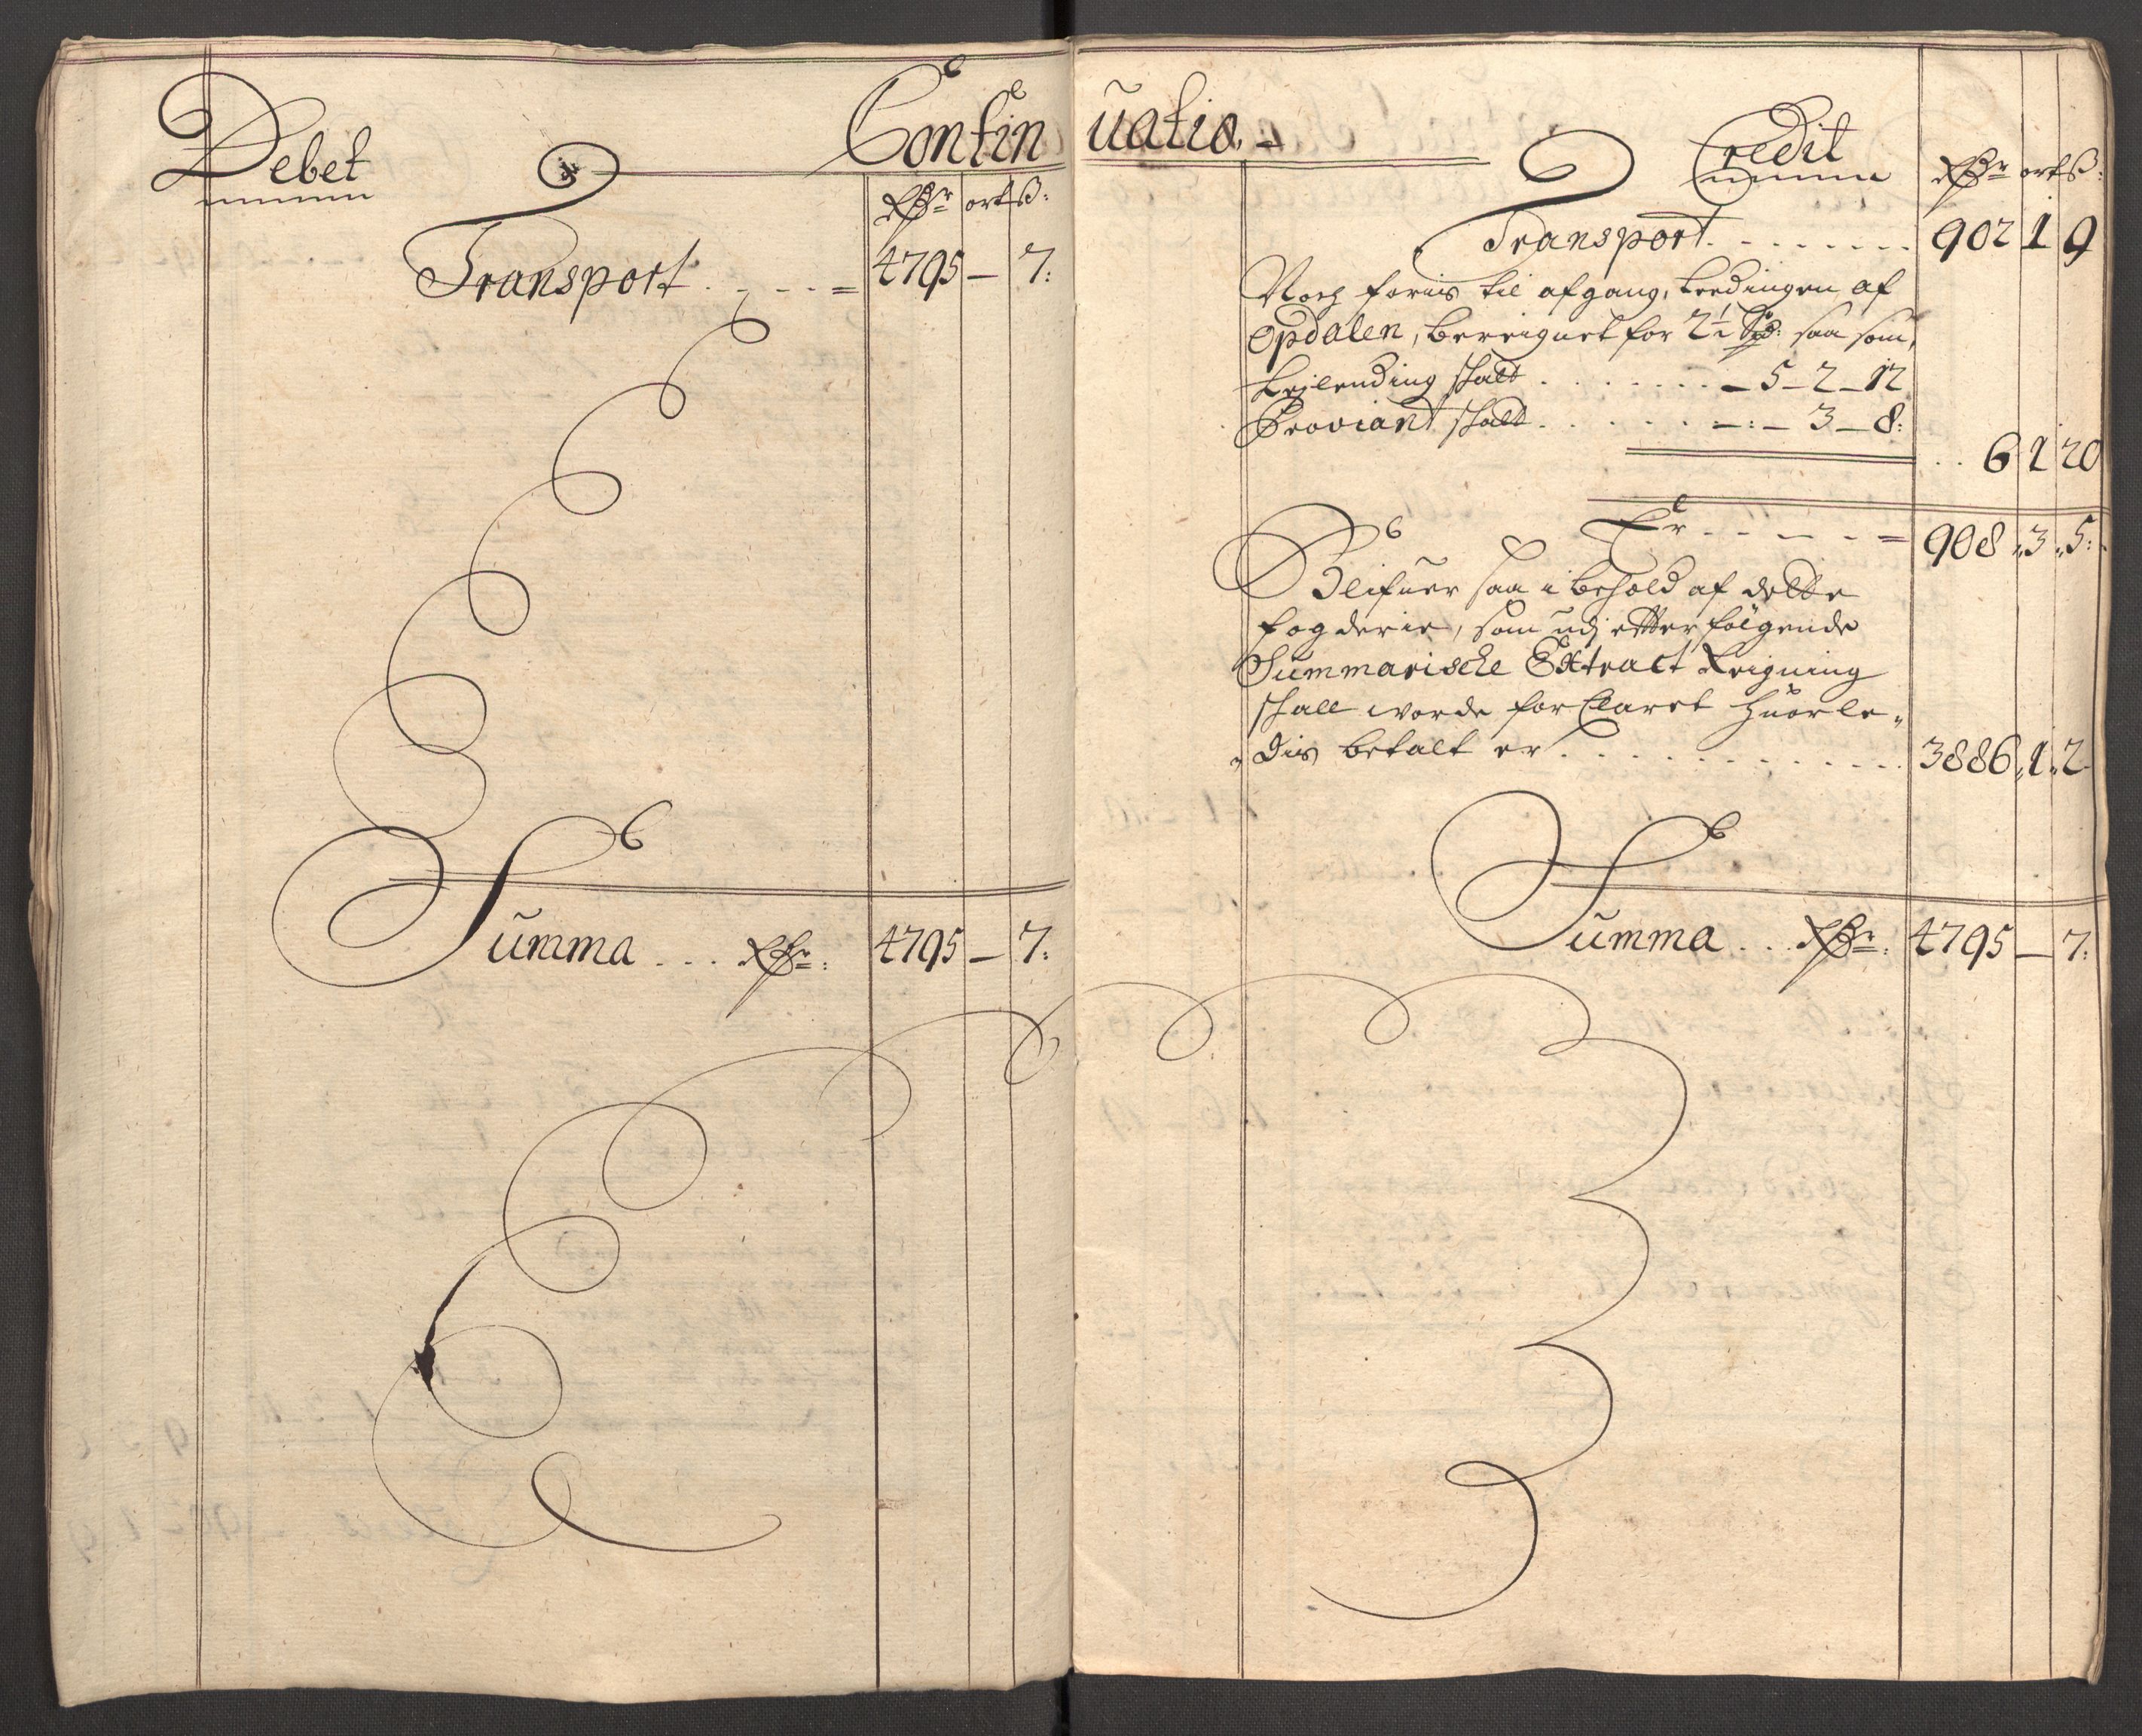 Debet
Contin
Rdr ort ß:
Transport . . . . = 4795 — 7:
Summa . . . Rdr: 4795 — 7:
uatio.
Credit
Rdr ort ß:
Transport . . . . . . . . 902 1 9
Noch føris til afgang, Leedingen af
Opdalen, bereignet for 2½ Spd: saa som,
Leilending skatt . . . . . . . . — 5 — 2 — 12
Proviant skatt . . . . . . —:— 3 — 8:
. . 6 1 20
Er . - - - - = 908 „ 3 „ 5:
Blifuer saa i behold af dette
fogderie, som udj efterfölgende
Summarische Extract Reigning
skall worde forClaret huorle„
„dis betalt er . . . . . . . . . . . . 3886 „ 1 „ 2
Summa . . . Rdr: 4795 — 7: